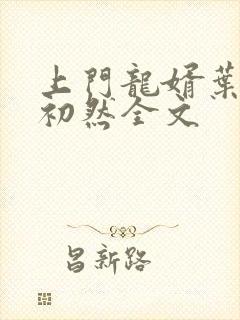 上門龍婿葉
初然全文
昌新路